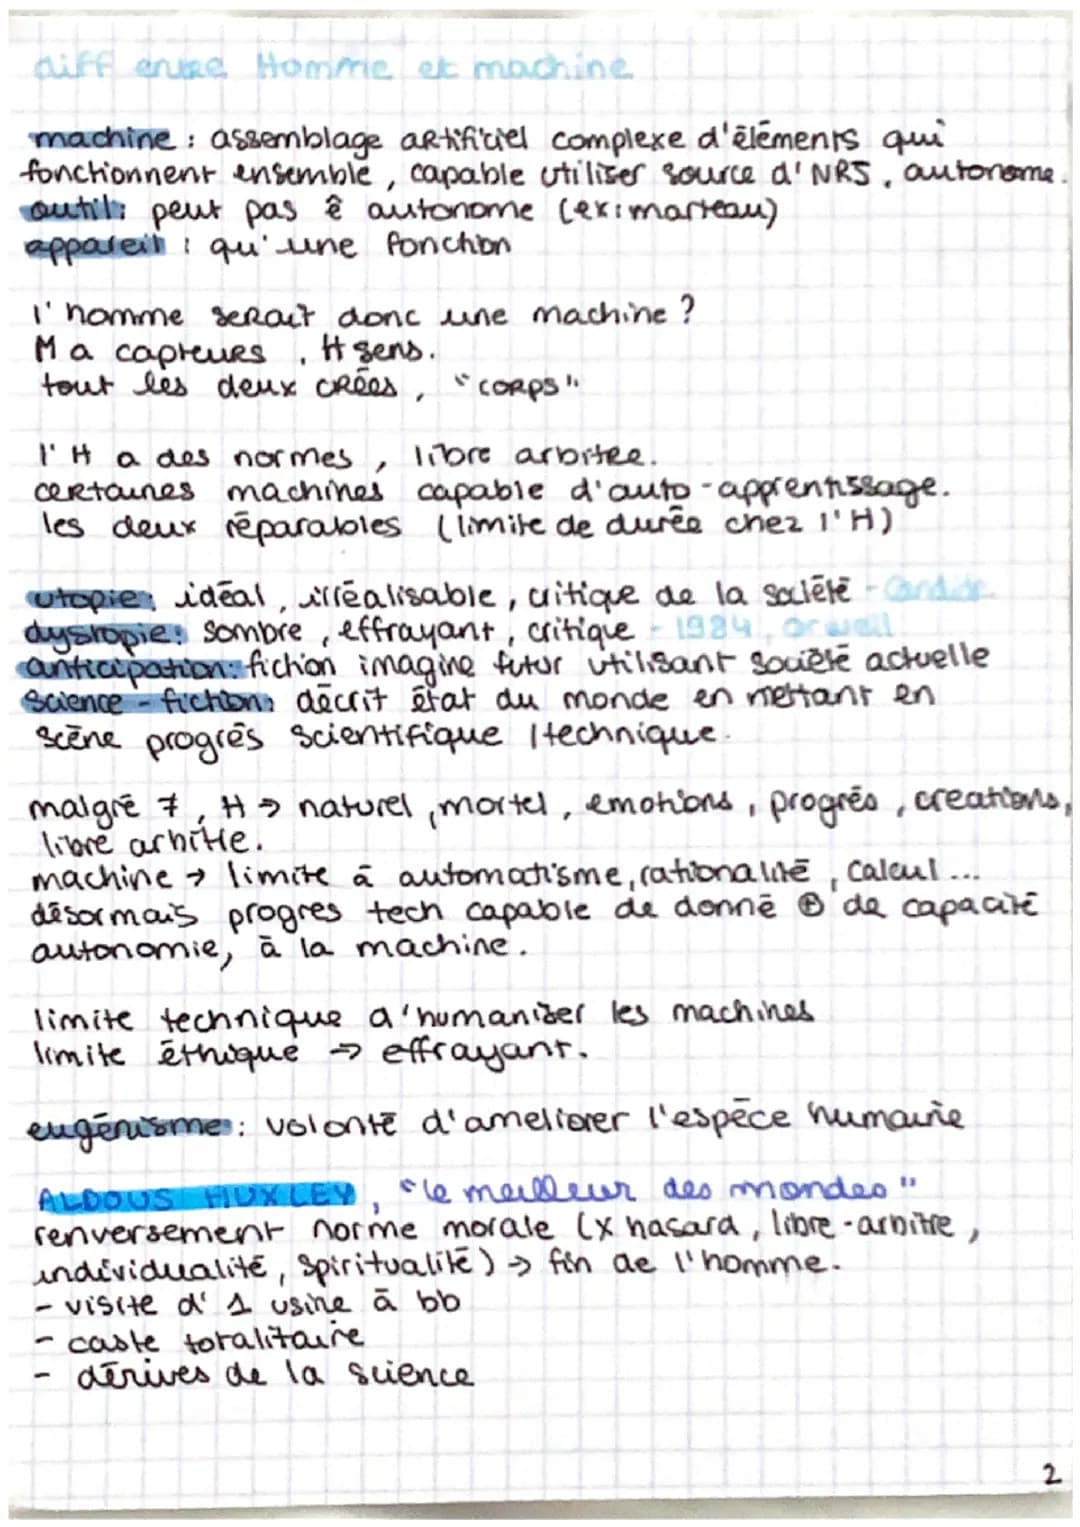 diff entre Homme et machine
machine : assemblage artificiel complexe d'éléments qui
fonctionnent ensemble, capable utiliser source d'NRJ, autonome.
outil: peut pas ê autonome (ex: marteau)
appareil : qu'une fonction
l'homme serait donc une machine ?
M a capteurs, H sens.
tout les deux crées, "corps"
l'H a des normes, libre arbitre.
certaines machines capable d'auto-apprentissage.
les deux réparables (limite de durée chez l'H)
utopie: idéal, irréalisable, critique de la société - Candide
dystopie: sombre, effrayant, critique - 1984, orwell
anticipation: fiction imagine futur utilisant société actuelle
science-fiction: décrit état du monde en mettant en
scène progrès scientifique / technique.
malgré ≠, H → naturel, mortel, emotions, progrès, creations,
libre arbitre.
machine → limite à automatisme, rationalité, calcul...
désormais progres tech capable de donné ⊕ de capacité
autonomie, à la machine.
limite technique d'humaniser les machines
limite éthique → effrayant.
eugénisme: volonté d'ameliorer l'espèce humaine
ALDOUS HUXLEY, "le meilleur des mondes"
renversement norme morale (x hasard, libre-arbitre,
individualité, spiritualité) → fin de l'homme.
- visite d'1 usine à bb
- caste totalitaire
- dérives de la science
2